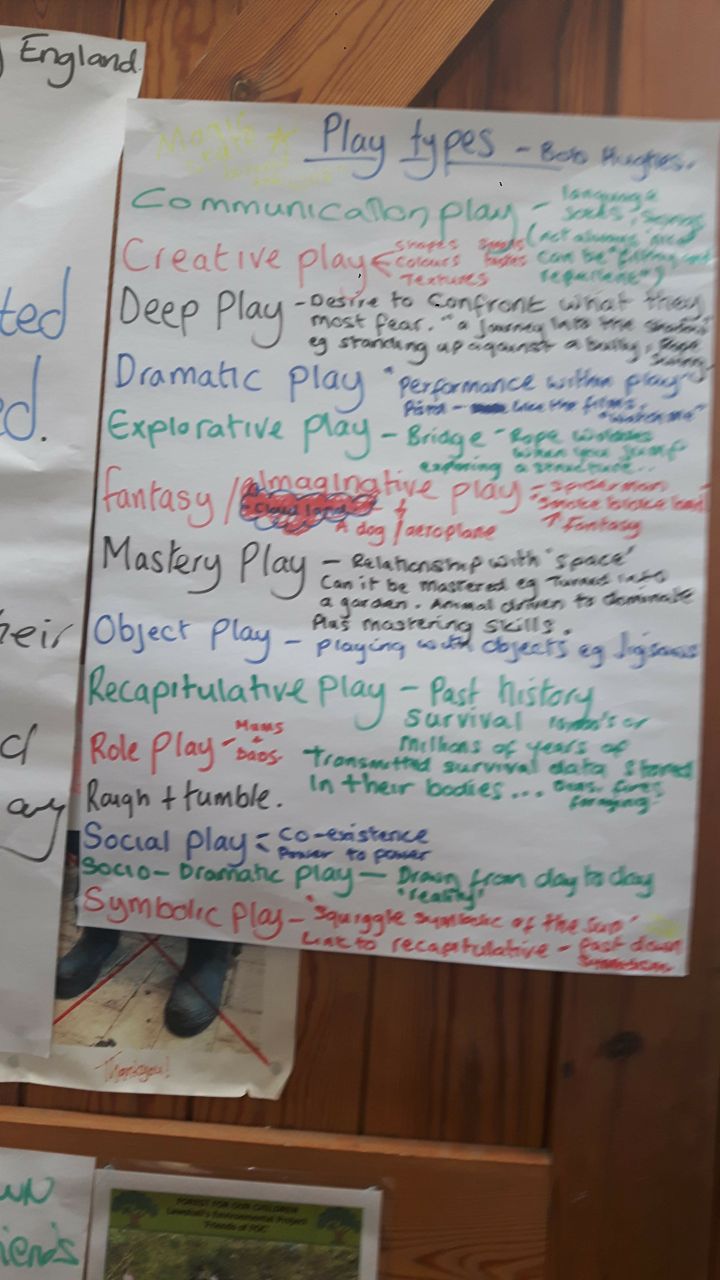 England.
Play types - Bob Hughes.
Communication play - language
(not always nice
can be "
Creative play < shapes
colours
Textures
Deep Play - Desire to confront what they
most fear. "a journey into the
eg standing up against a bully,
Dramatic play "performance within play"
films,
"watch me"
Explorative play - Bridge - Rope wobbles
when you jump
exploring a structure...
fantasy / Imaginative play - spiderman
Cloud land
A dog / aeroplane
↑ fantasy
Mastery Play - Relationship with 'space'
Can it be mastered eg Turned into
a garden. Animal driven to dominate
Plus mastering skills.
Object play - playing with objects eg Jigsaws
Recapitulative play - Past history
survival
millions of years of
transmitted survival data stored
in their bodies... Dens, fires
farming
Role Play - Mums
+
Dads.
Rough + tumble.
Social play < co-existence
Power to power
Socio-Dramatic play - Drawn from day to day
"reality"
Symbolic play - "squiggle symbolic of the sun"
Link to recapitulative - past down
ted
d.
heir
d
ay
Thankyou!
FOREST FOR OUR CHILDREN
Environmental Project
'Friends of FOC'
wn
iends